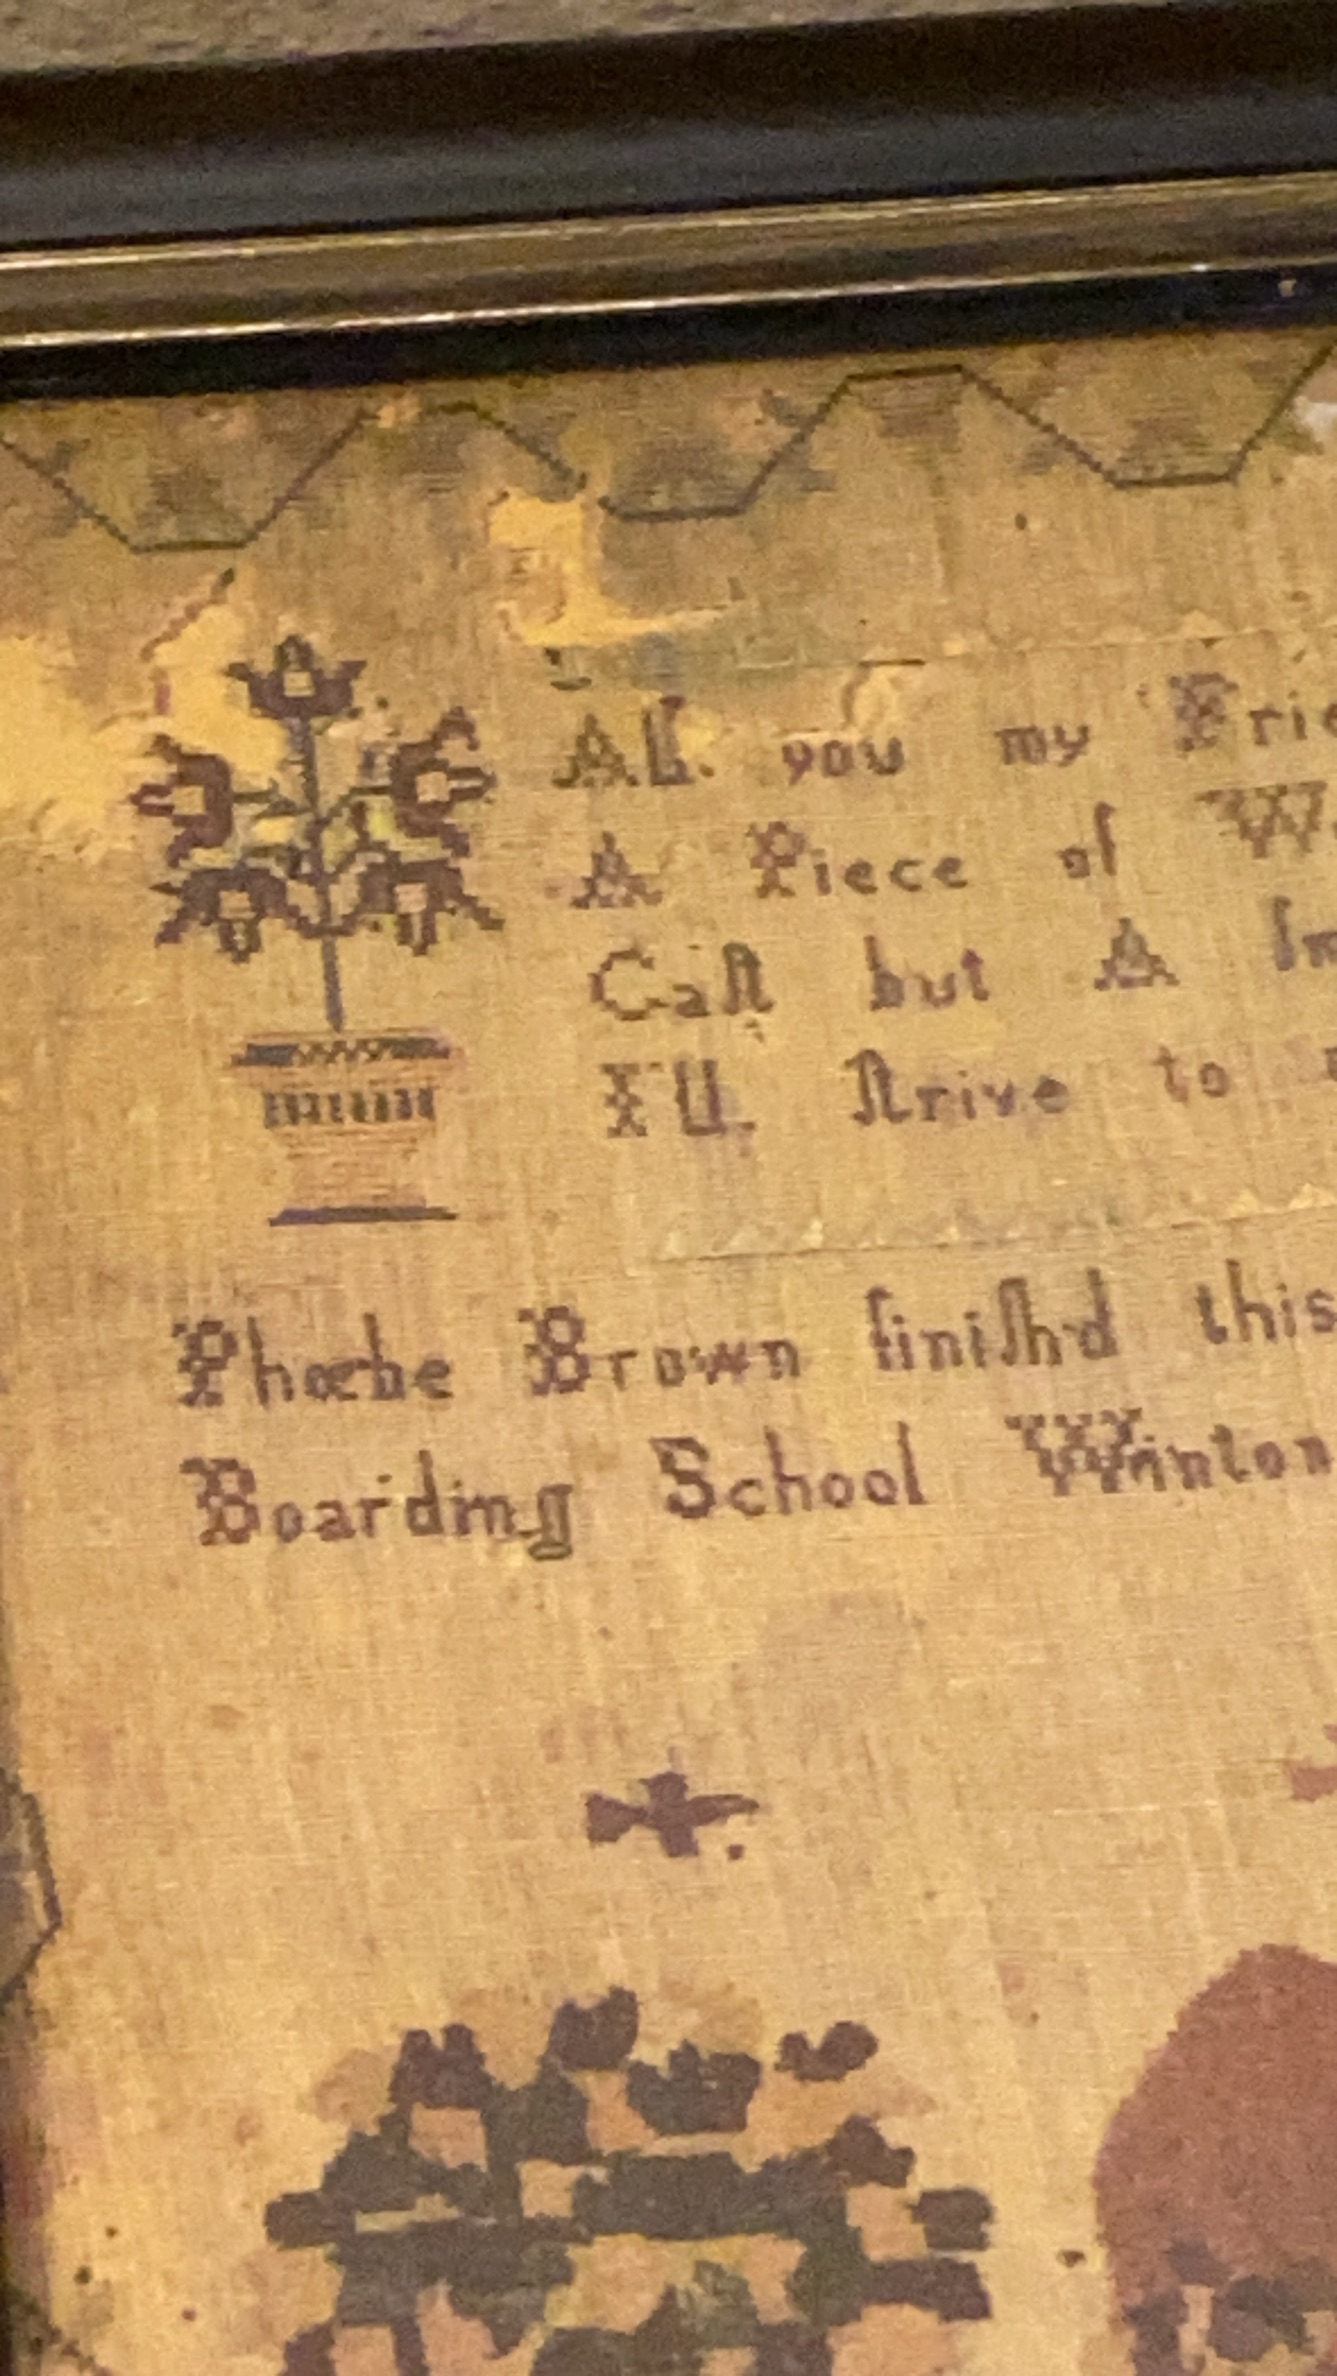 All you my Frie
A Piece of W
Caſt but A ſm
I'll ſtrive to
Phoebe Brown finiſh'd this
Boarding School Winton